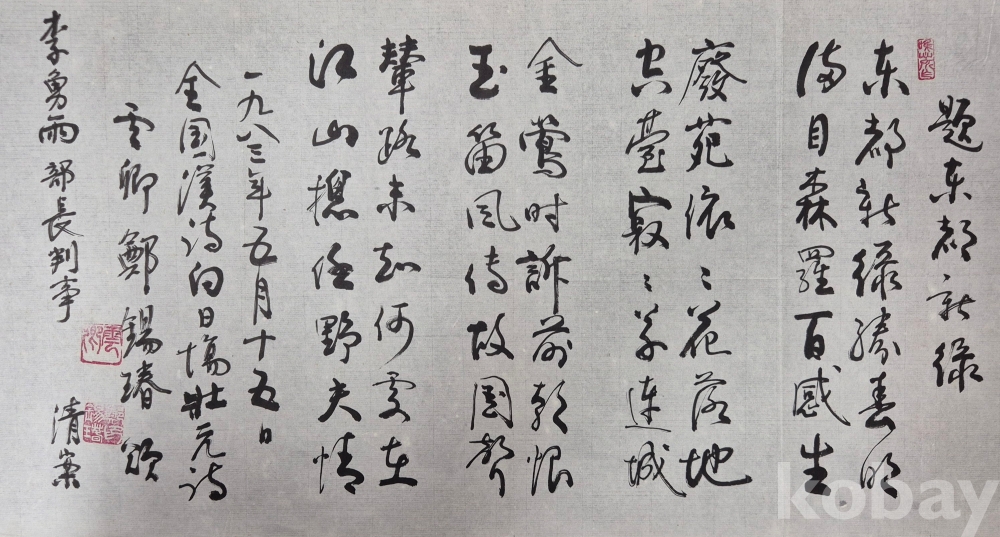 題東都新綠
東都新綠勝春明
滿目森羅百感生
廢苑依〻花落地
空臺寂〻草連城
金鶯時訴前朝恨
玉笛風傳故国聲
輦路未知何处在
江山摠任野夫情
一九八三年五月十五日
全国漢詩白日場壯元詩
雲卿鄭錫瑃頌
李勇雨部長判事 清案
kobay